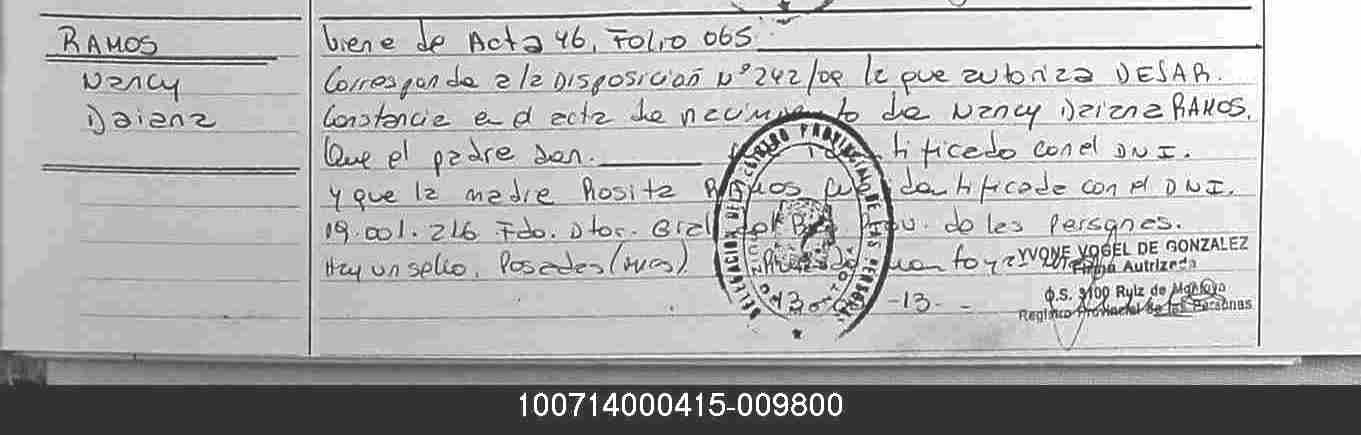 RAMOS
Nancy
Daiana
Viene de Acta 46, Folio 065.
Corresponde a la Disposición Nº 242/09 la que autoriza DEJAR.
Constancia en el acta de nacimiento de Nancy Daiana RAMOS.
Que el padre don. identificado con el DNI.
y que la madre Rosita Ramos fue identificada con el DNI.
19.001.216 Fdo. Dtor. Gral del de las Personas.
Hay un sello, Posadas (Mnes).
-13-
DELEGACION DEL REGISTRO PROVINCIAL DE LAS PERSONAS
YVONE VOGEL DE GONZALEZ
Firma Autrizada
O.S. 3100 Ruiz de Montoya
Registro Provincial de las Personas
100714000415-009800